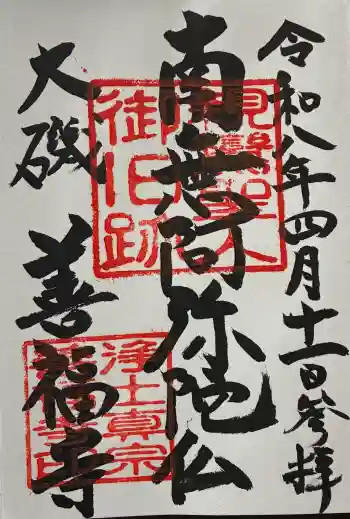 令和八年四月十一日参拝
南無阿弥陀仏
大磯 善福寺
親鸞聖人
御旧跡
浄土真宗
善福寺印